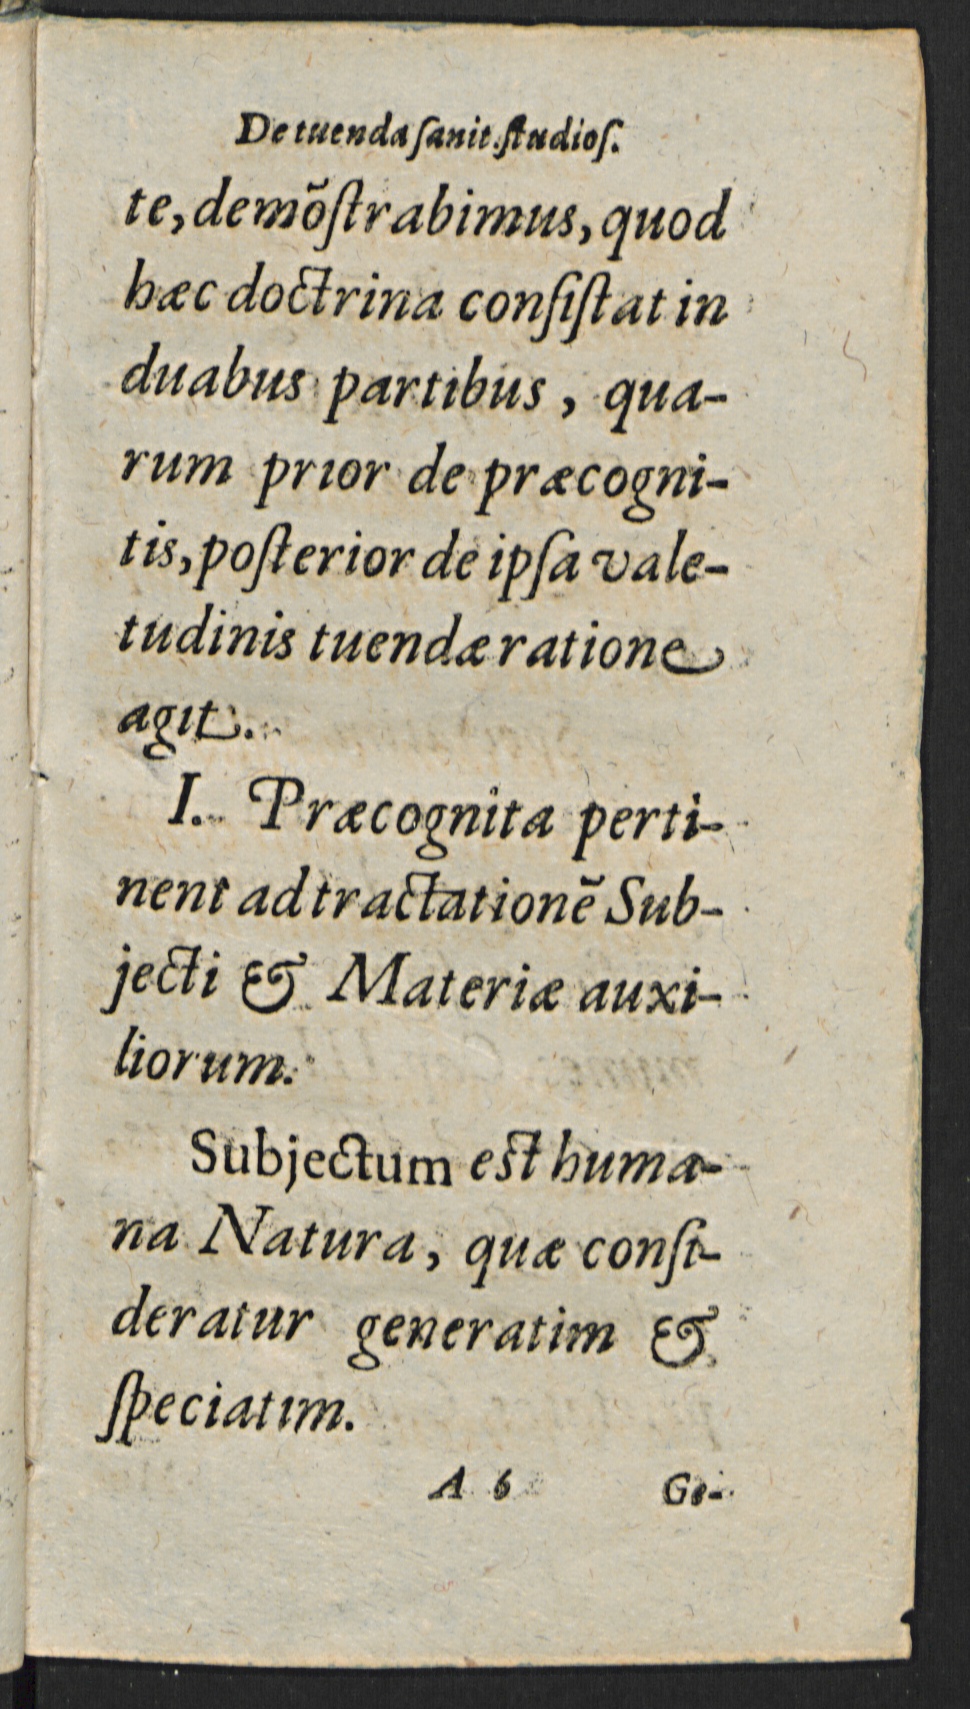 De tuenda ſanit. ſtudioſ.
te, demõſtrabimus, quod
hæc doctrina conſiſtat in
duabus partibus, qua-
rum prior de præcogni-
tis, poſterior de ipſa vale-
tudinis tuendæ ratione
agit.
I. Præcognita perti-
nent ad tractationẽ Sub-
jecti & Materiæ auxi-
liorum.
Subjectum eſt huma-
na Natura, quæ conſi-
deratur generatim &
ſpeciatim.
A 6 Ge-